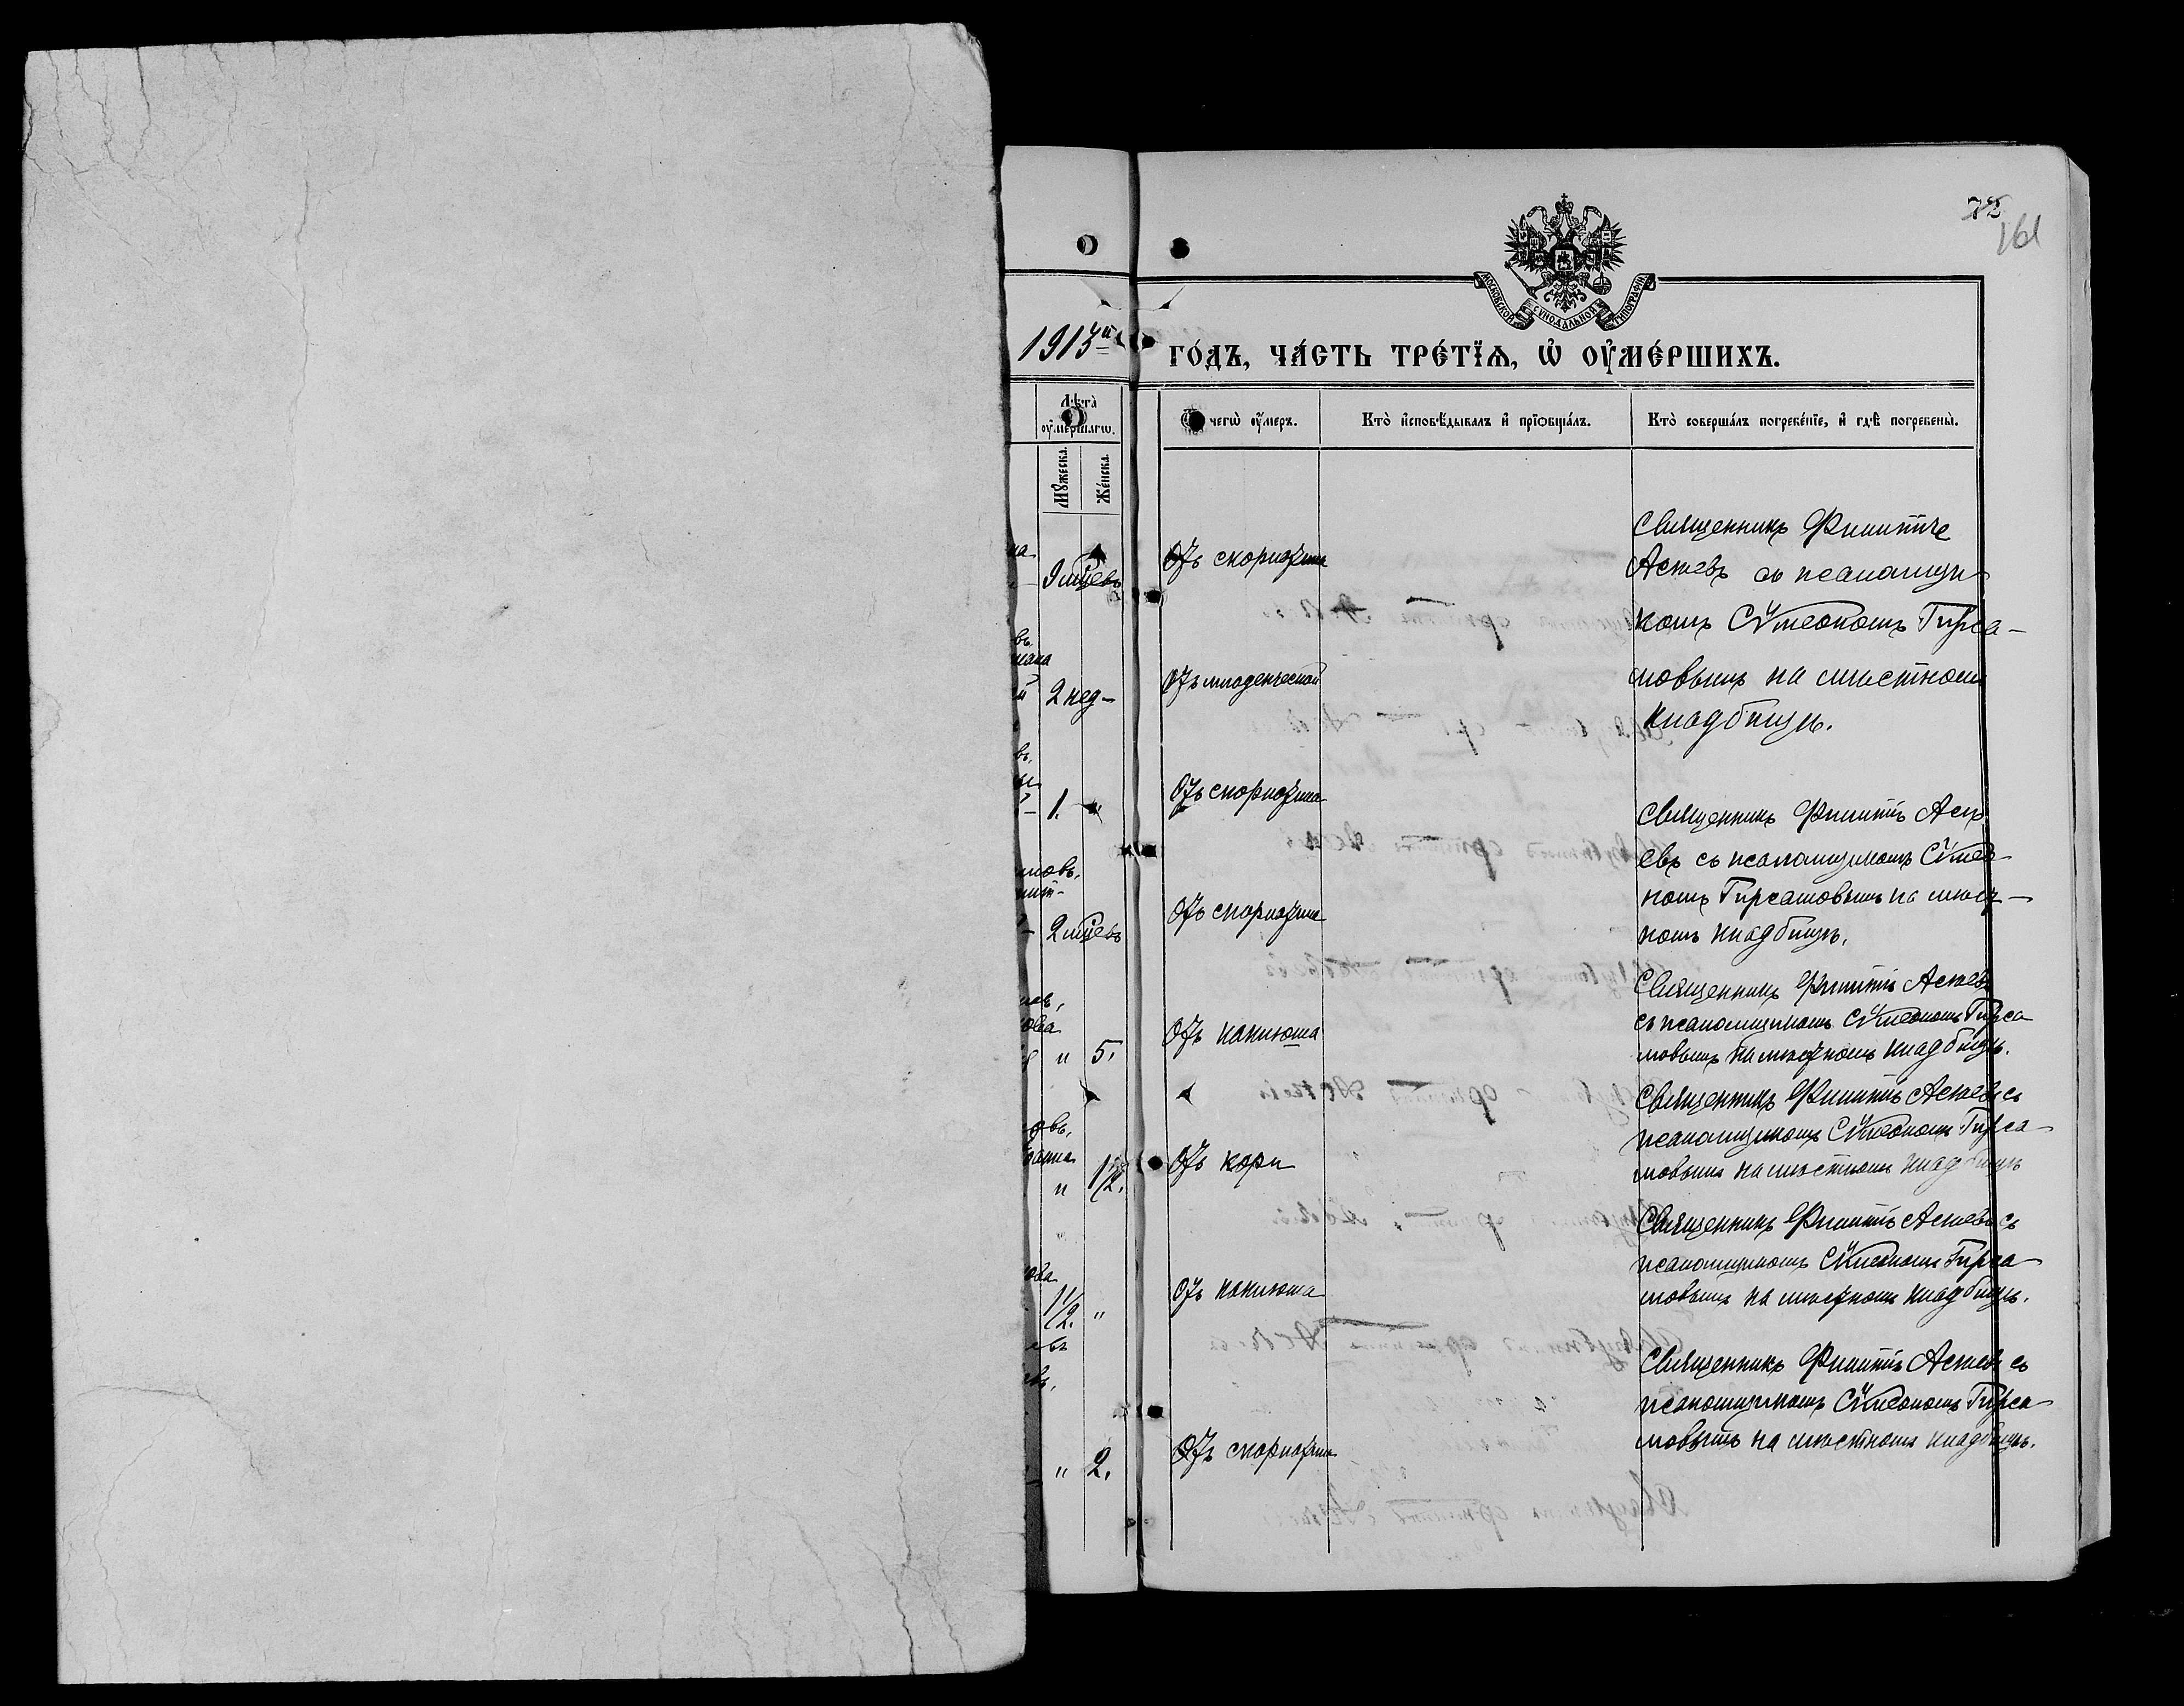 72
161
МОСКОВСКОЙ СѴНОДАЛЬНОЙ ТИПОГРАФІИ
1913й
го́дъ, ча́сть тре́тїѧ, ѡ҆ ᲂу҆ме́ршихъ.
Лѣ́та ᲂу҆ме́ршагѡ.
Мꙋ́жеска.
Же́нска.
чегѡ̀ ᲂу҆́меръ.
Кто̀ и҆сповѣ́дывалъ и҆ прїѡбща́лъ.
Кто̀ соверша́лъ погребе́нїе, и҆ гдѣ̀ погребены̀.
9 мцевъ
Отъ скорлатина
Священникъ Филиппъ
Асѣевъ съ псаломщи
комъ Сѵмеономъ Гирса-
мовымъ на мѣстномъ
кладбищѣ.
2 нед-
Отъ младенческой
1. "
Отъ скорлатина
Священникъ Филиппъ Асѣ
евъ съ псаломщикомъ Сѵмео-
номъ Гирсамовымъ на мѣст-
номъ кладбищѣ.
2 мцевъ
Отъ скорлатина
Священникъ Филиппъ Асѣевъ
съ псаломщикомъ Сѵмеономъ Гирса
мовымъ на мѣстномъ кладбищѣ.
" 5.
Отъ коклюша
Священникъ Филиппъ Асѣевъ съ
псаломщикомъ Сѵмеономъ Гирса-
мовымъ на мѣстномъ кладбищѣ
" 1 1/2.
Отъ кори
Священникъ Филиппъ Асѣевъ съ
псаломщикомъ Сѵмеономъ Гирса-
мовымъ на мѣстномъ кладбищѣ.
1 1/2. "
Отъ коклюша
Священникъ Филиппъ Асѣевъ съ
псаломщикомъ Сѵмеономъ Гирса-
мовымъ на мѣстномъ кладбищѣ.
" 2.
Отъ скорлатина